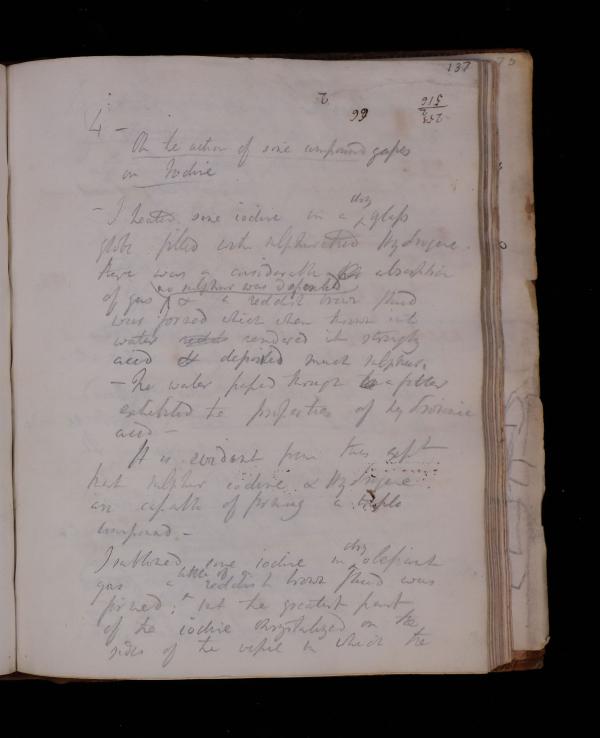 137
2
66
253
2
516
4 - On the action of some compound gases
on Iodine
- I heated some iodine in a dry glass
globe filled with sulphuretted Hydrogene.
there was a considerable absorption
no sulphur was deposited
of gas & a reddish brown fluid
was formed which when thrown into
water rendered it strongly
acid & deposited much sulphur.
- The water passed through a filter
exhibited the properties of hydroionic
acid -
It is evident from this expt
that sulphur iodine & Hydrogene
are capable of forming a triple
compound. -
I sublimed some iodine in dry olefiant
gas a little of a reddish brown fluid was
formed; but the greatest part
of the iodine chrystalized on the
sides of the vessel in which the